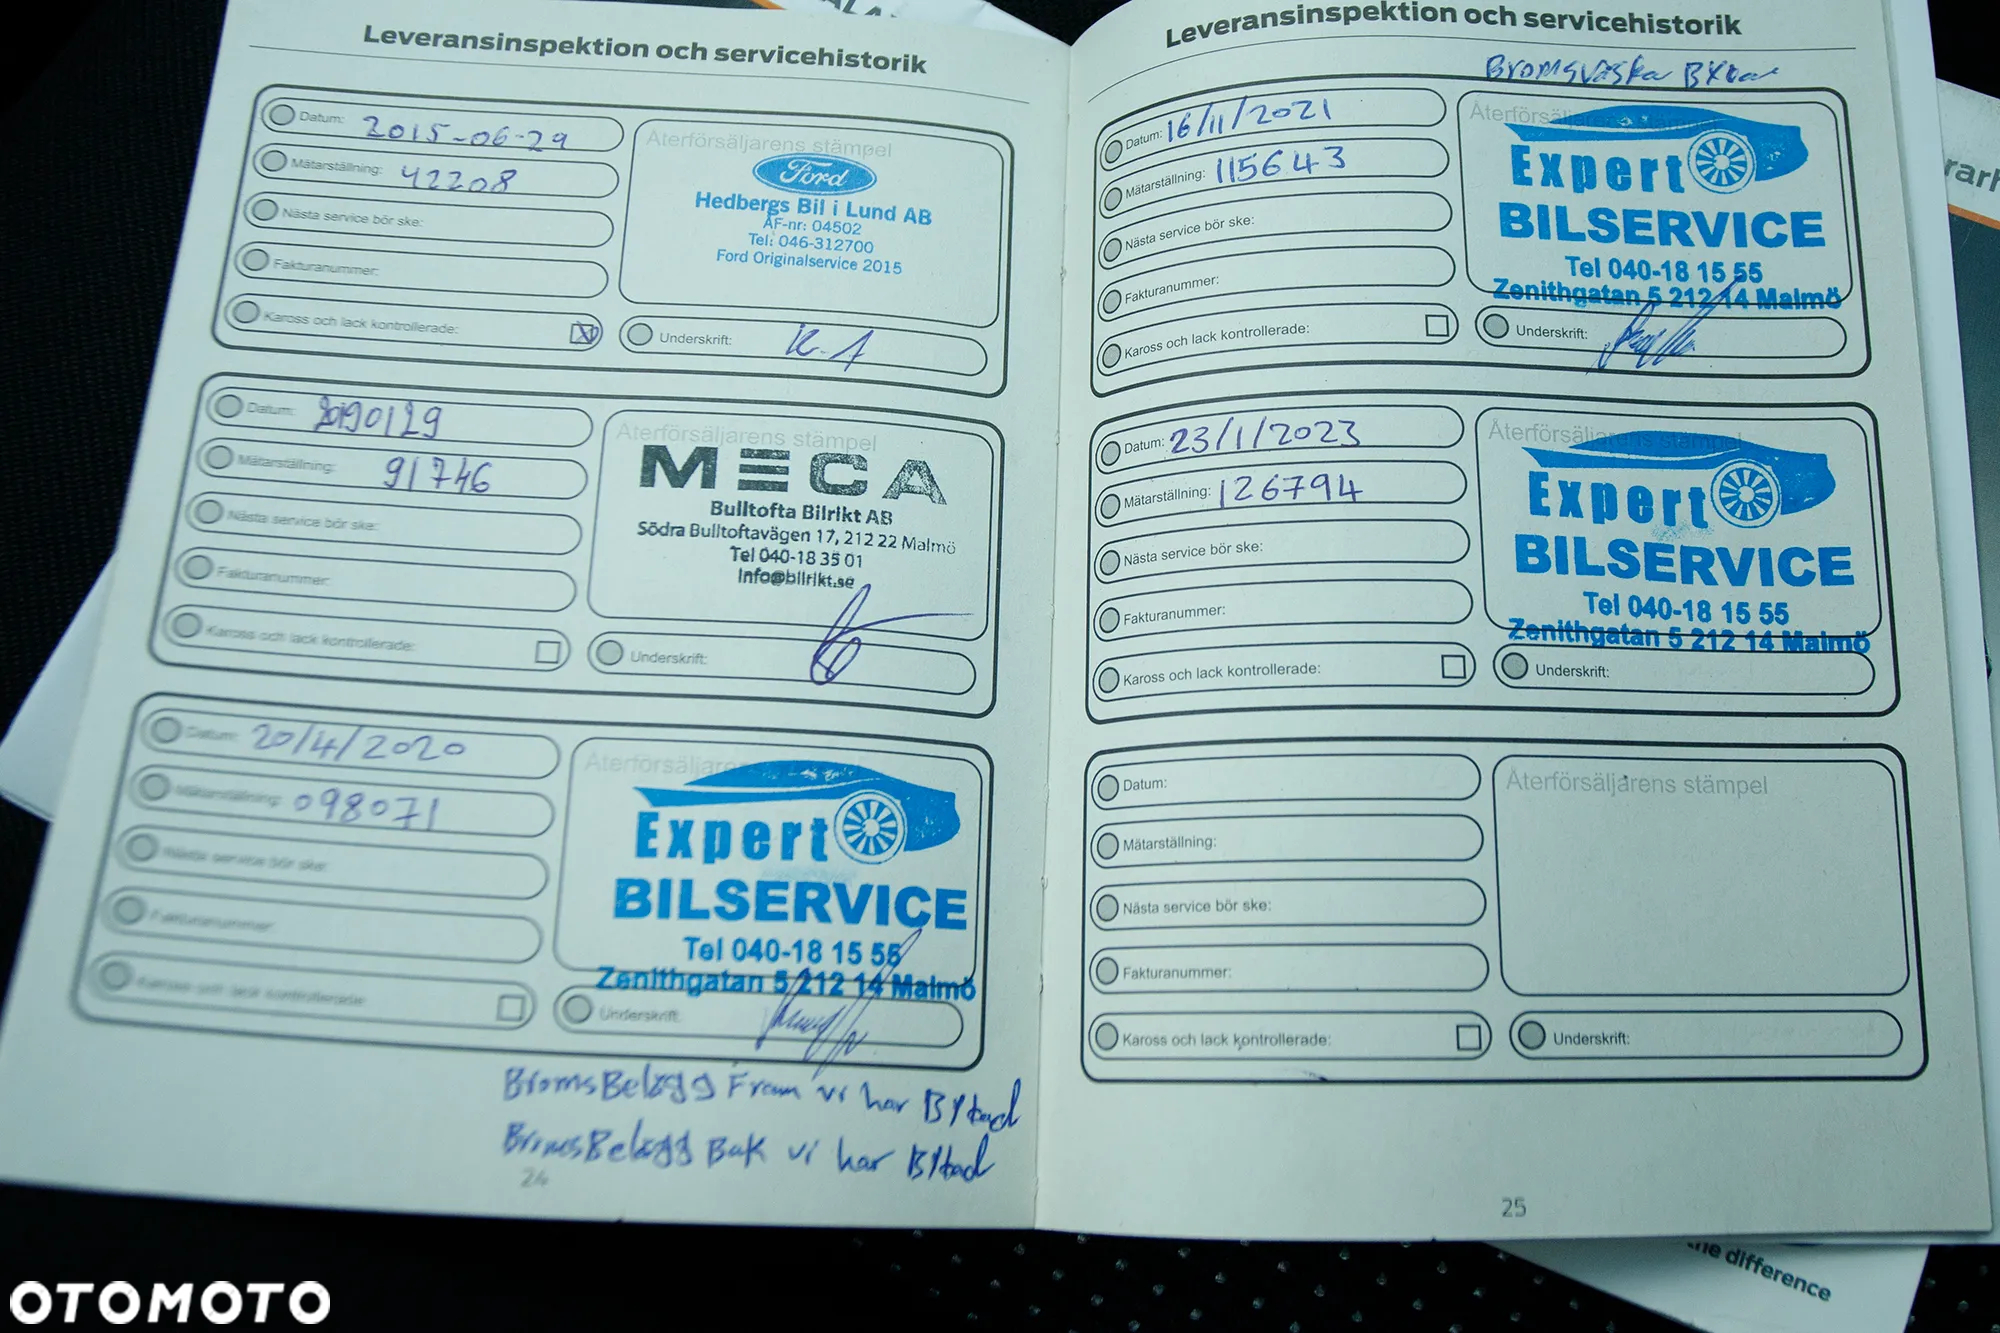 Leveransinspektion och servicehistorik
Datum: 2015-06-29
Mätarställning: 42208
Nästa service bör ske:
Fakturanummer:
Kaross och lack kontrollerade:
Återförsäljarens stämpel
Ford
Hedbergs Bil i Lund AB
ÅF-nr: 04502
Tel: 046-312700
Ford Originalservice 2015
Underskrift:
Datum: 20190129
Mätarställning: 91746
Nästa service bör ske:
Fakturanummer:
Kaross och lack kontrollerade:
Återförsäljarens stämpel
MECA
Bulltofta Bilrikt AB
Södra Bulltoftavägen 17, 212 22 Malmö
Tel 040-18 35 01
info@bilrikt.se
Underskrift:
Datum: 20/4/2020
Mätarställning: 098071
Nästa service bör ske:
Fakturanummer:
Kaross och lack kontrollerade:
Återförsäljarens
Expert
BILSERVICE
Tel 040-18 15 55
Zenithgatan 5 212 14 Malmö
Underskrift:
BromsBelägg Fram vi har Bytad
BromsBelägg Bak vi har Bytad
24
Leveransinspektion och servicehistorik
Bromsväska Bytar
Datum: 16/11/2021
Mätarställning: 115643
Nästa service bör ske:
Fakturanummer:
Kaross och lack kontrollerade:
Återförsäljarens stämpel
Expert
BILSERVICE
Tel 040-18 15 55
Zenithgatan 5 212 14 Malmö
Underskrift:
Datum: 23/1/2023
Mätarställning: 126794
Nästa service bör ske:
Fakturanummer:
Kaross och lack kontrollerade:
Återförsäljarens stämpel
Expert
BILSERVICE
Tel 040-18 15 55
Zenithgatan 5 212 14 Malmö
Underskrift:
Datum:
Mätarställning:
Nästa service bör ske:
Fakturanummer:
Kaross och lack kontrollerade:
Återförsäljarens stämpel
Underskrift:
25
the difference
OTOMOTO